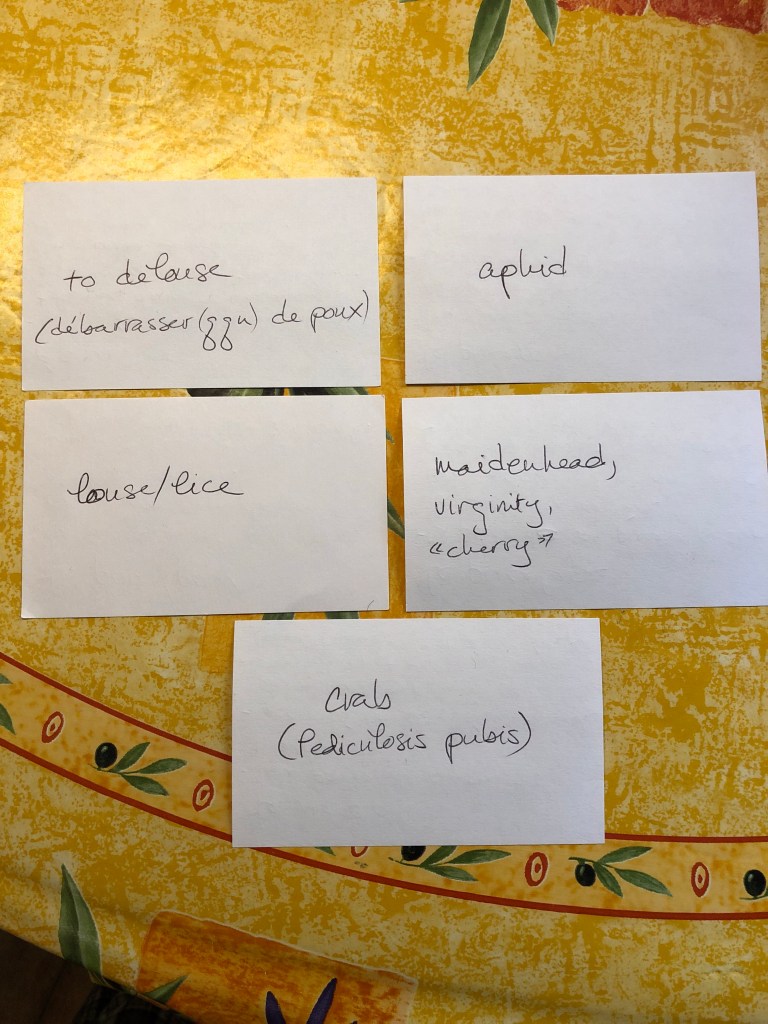 to delouse
(débarrasser (qqn) de poux)
aphid
louse/lice
maidenhead,
virginity,
«cherry»
crabs
(Pediculosis pubis)